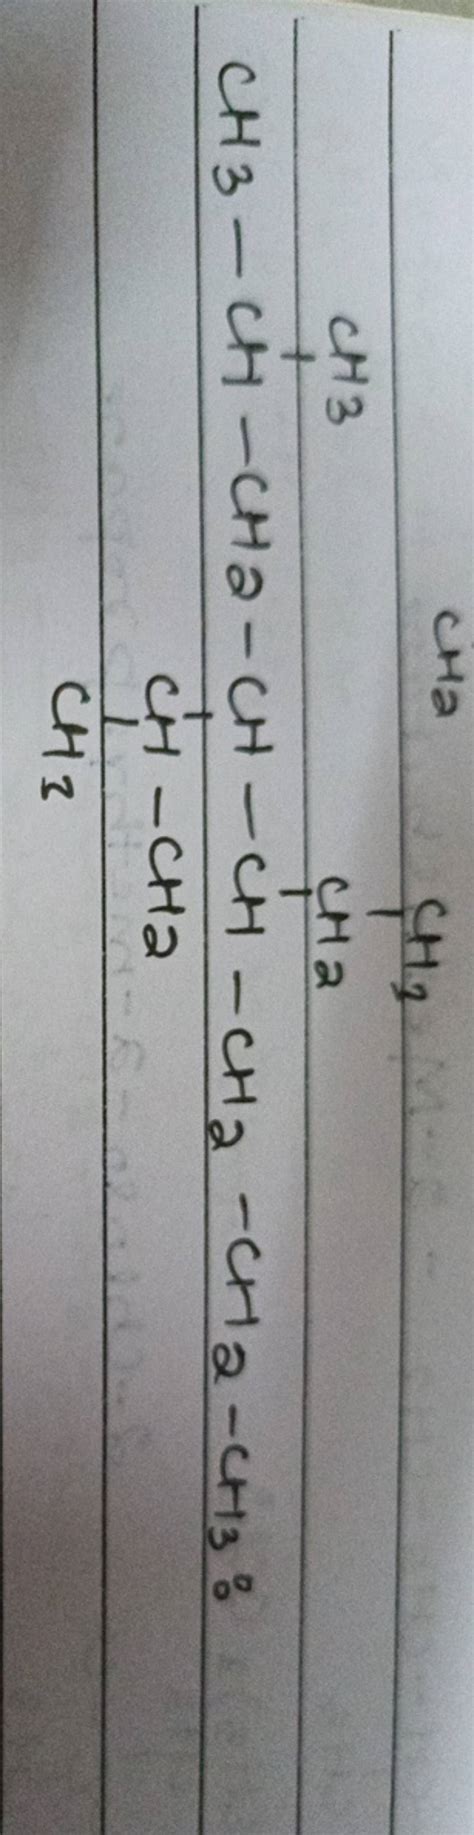 CH2
CH3
CH3 CH2
CH3-CH-CH2-CH-CH-CH2-CH2-CH3:
CH-CH2
CH3